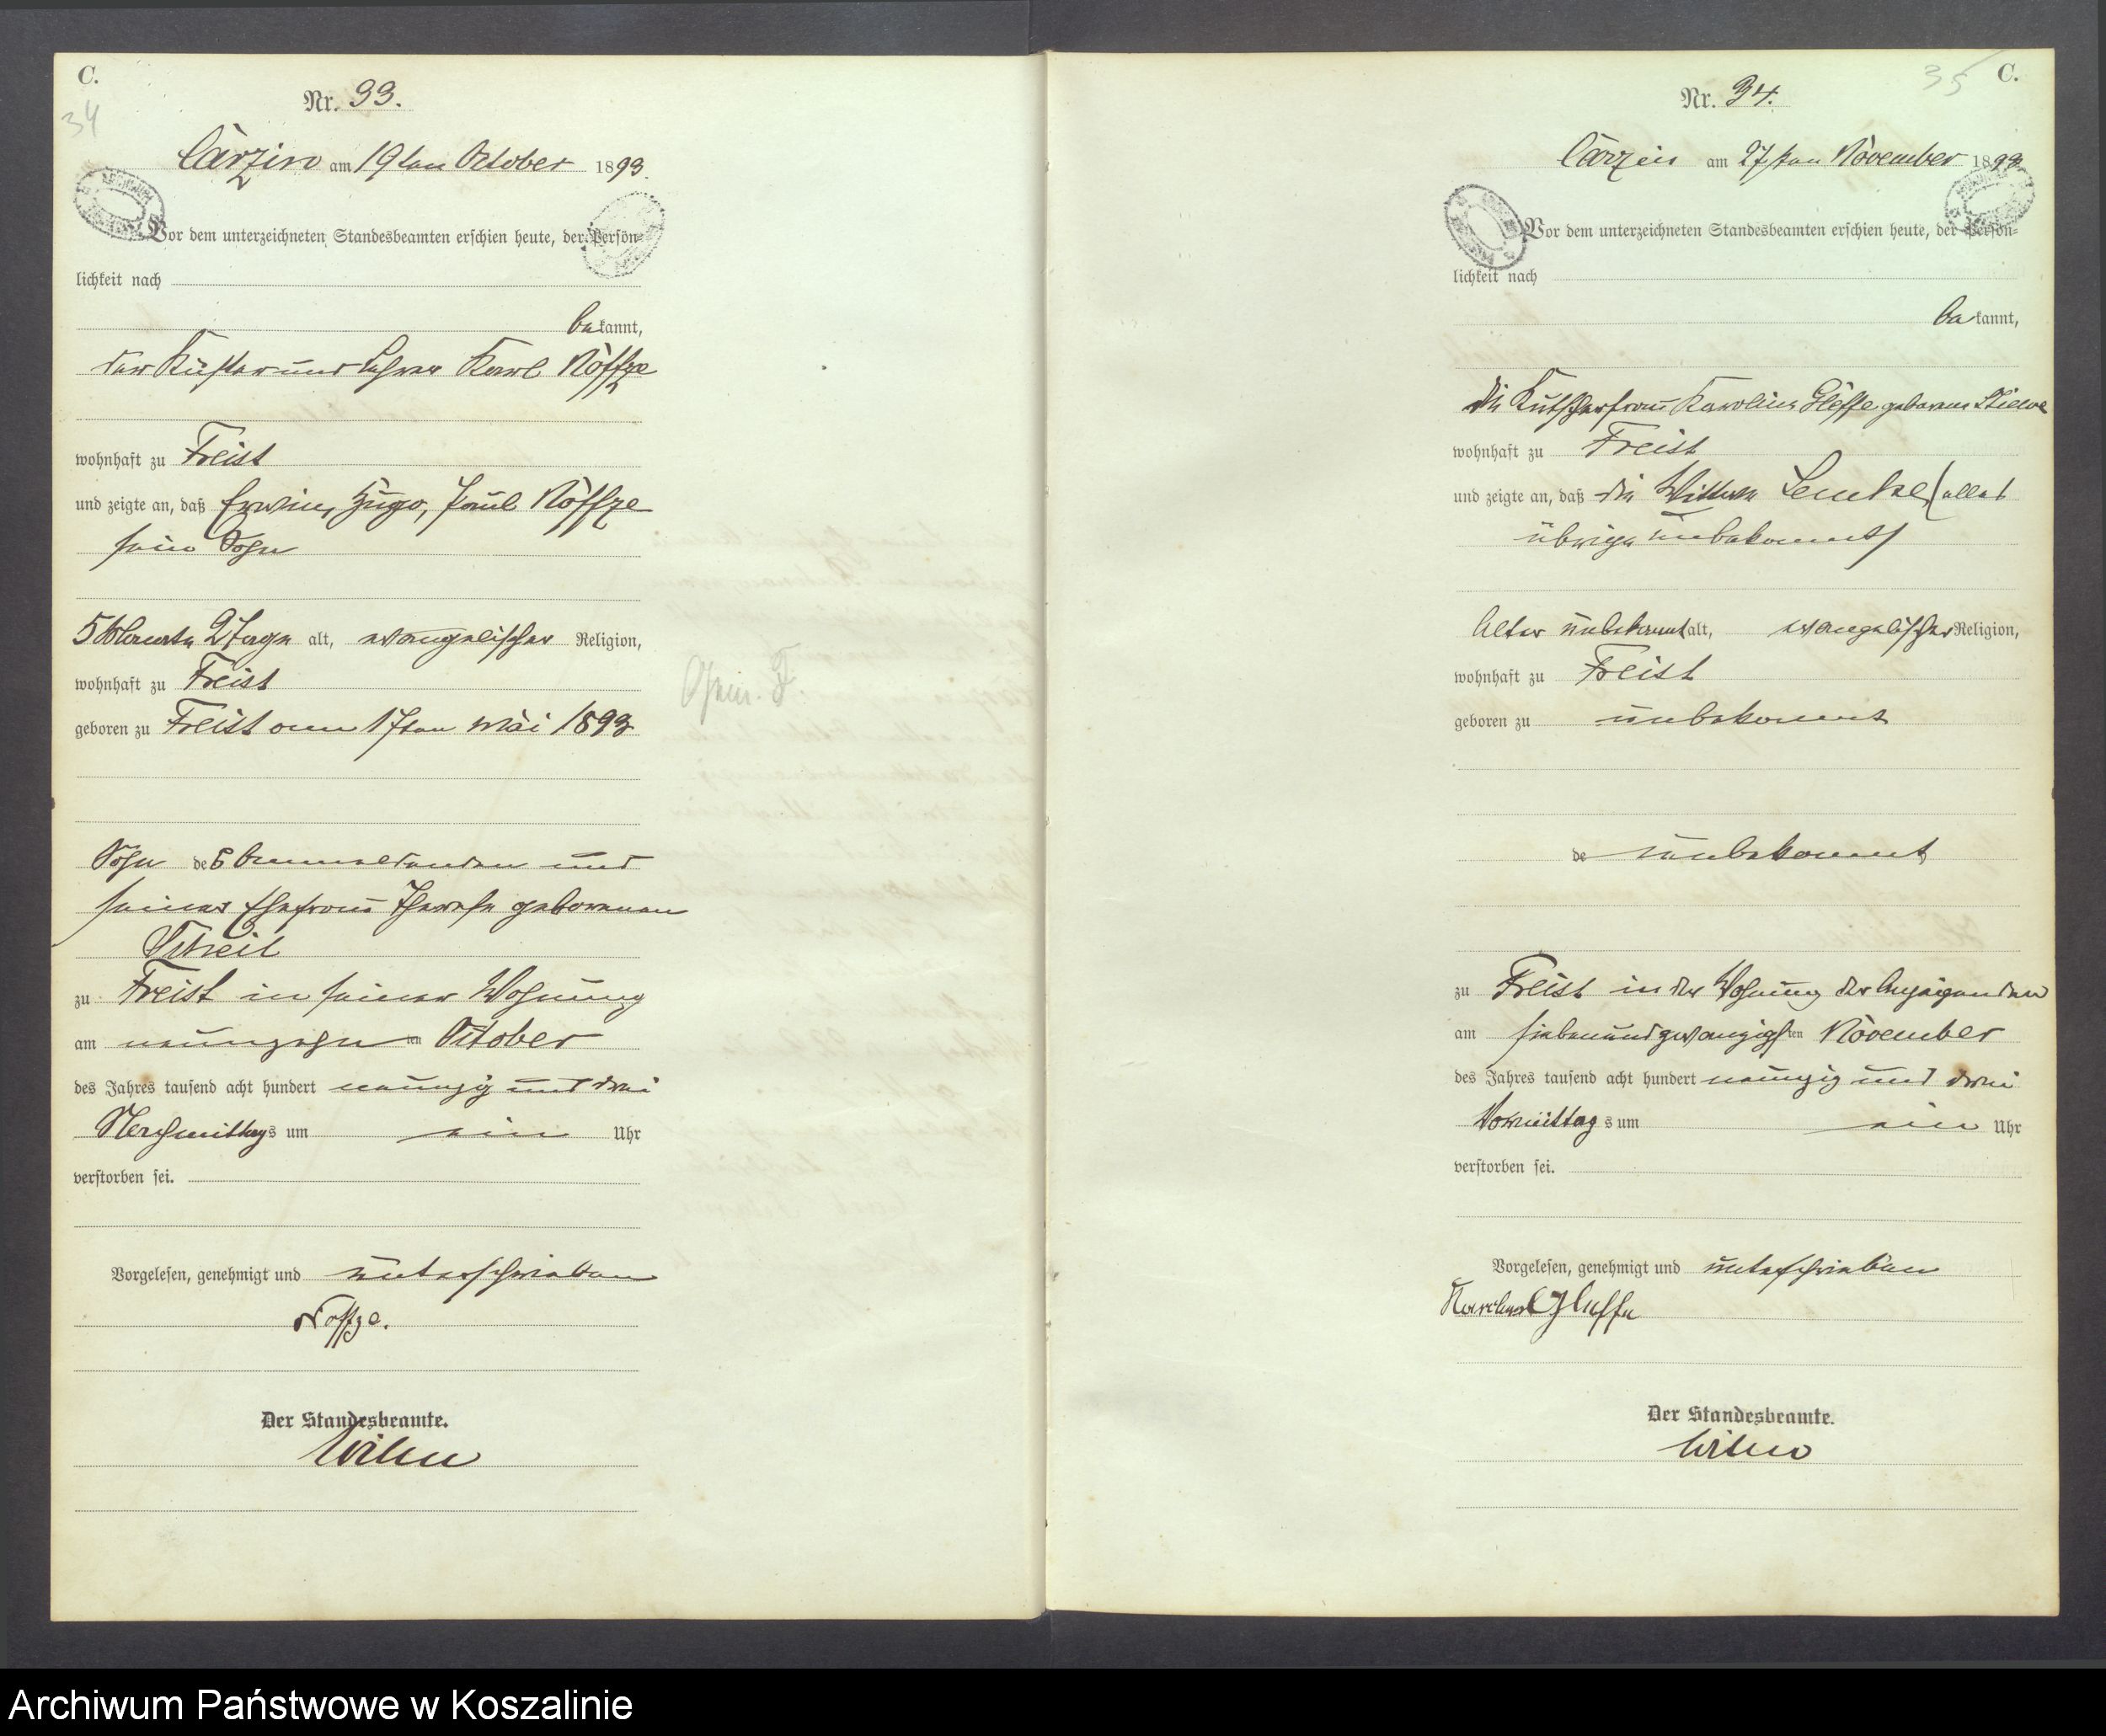 C.
34
Nr. 33.
Carzin am 19ten October 1893.
Vor dem unterzeichneten Standesbeamten erschien heute, der Persön=
lichkeit nach
bekannt,
der Küster und Lehrer Karl Noffze
wohnhaft zu Freist
und zeigte an, daß Erwin, Hugo, Paul Noffze
sein Sohn
5 Monate 2 Tage alt, evangelischer Religion,
wohnhaft zu Freist
geboren zu Freist am 17ten Mai 1893
Sohn des Anmeldenden und
seiner Ehefrau Therese geborenen
zu Freist in seiner Wohnung
am neunzehnten October
des Jahres tausend acht hundert neunzig und drei
Nachmittags um ein Uhr
verstorben sei.
Vorgelesen, genehmigt und unterschrieben
Noffze.
Der Standesbeamte.
C.
35
Nr. 34.
Carzin am 27ten November 1893
Vor dem unterzeichneten Standesbeamten erschien heute, der Persön=
lichkeit nach
bekannt,
die Kutscherfrau Karoline Gleffe geborene
wohnhaft zu Freist
und zeigte an, daß die Wittwe Lemke, (alles
übrige unbekannt)
Alter unbekannt alt, evangelischer Religion,
wohnhaft zu Freist
geboren zu unbekannt
de unbekannt
zu Freist in der Wohnung der Anzeigenden
am siebenundzwanzigsten November
des Jahres tausend acht hundert neunzig und drei
Vormittags um ein Uhr
verstorben sei.
Vorgelesen, genehmigt und unterschrieben
Gleffe
Der Standesbeamte.
Archiwum Państwowe w Koszalinie